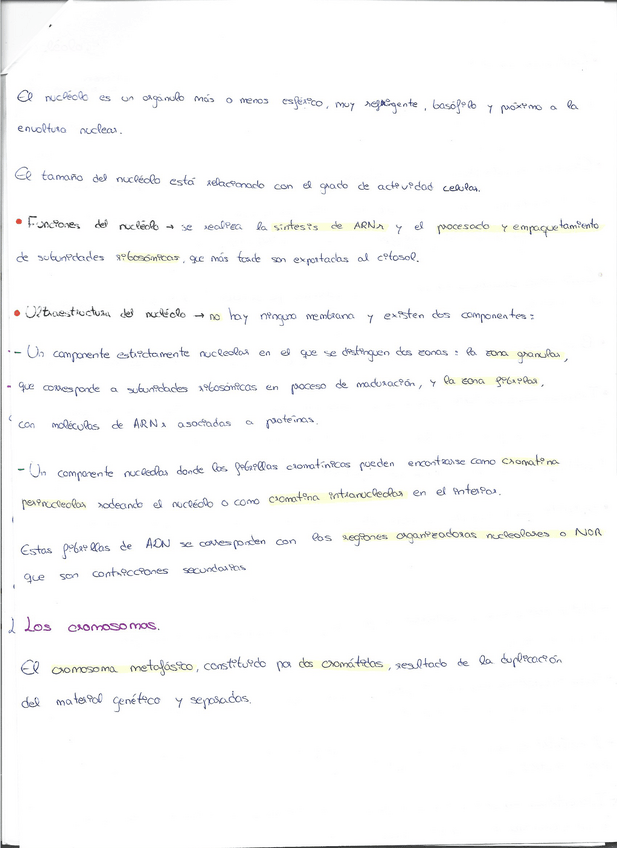 El nucléolo es un orgánulo más o menos esférico, muy refrigente, basófilo y próximo a la
envoltura nuclear.
El tamaño del nucléolo está relacionado con el grado de actividad celular.
• Funciones del nucléolo → se realiza la síntesis de ARNr y el procesado y empaquetamiento
de subunidades ribosómicas, que más tarde son exportadas al citosol.
• Ultraestructura del nucléolo → no hay ninguna membrana y existen dos componentes:
- Un componente estrictamente nucleolar en el que se distinguen dos zonas: la zona granular,
que corresponde a subunidades ribosómicas en proceso de maduración, y la zona fibrilar,
con moléculas de ARNr asociadas a proteínas.
- Un componente nucleolar donde las fibrillas cromatínicas pueden encontrarse como cromatina
perinucleolar rodeando el nucléolo o como cromatina intranucleolar en el interior.
Estas fibrillas de ADN se corresponden con las regiones organizadoras nucleolares o NOR
que son contricciones secundarias
Los cromosomas.
El cromosoma metafásico, constituido por dos cromátidas, resultado de la duplicación
del material genético y separadas.